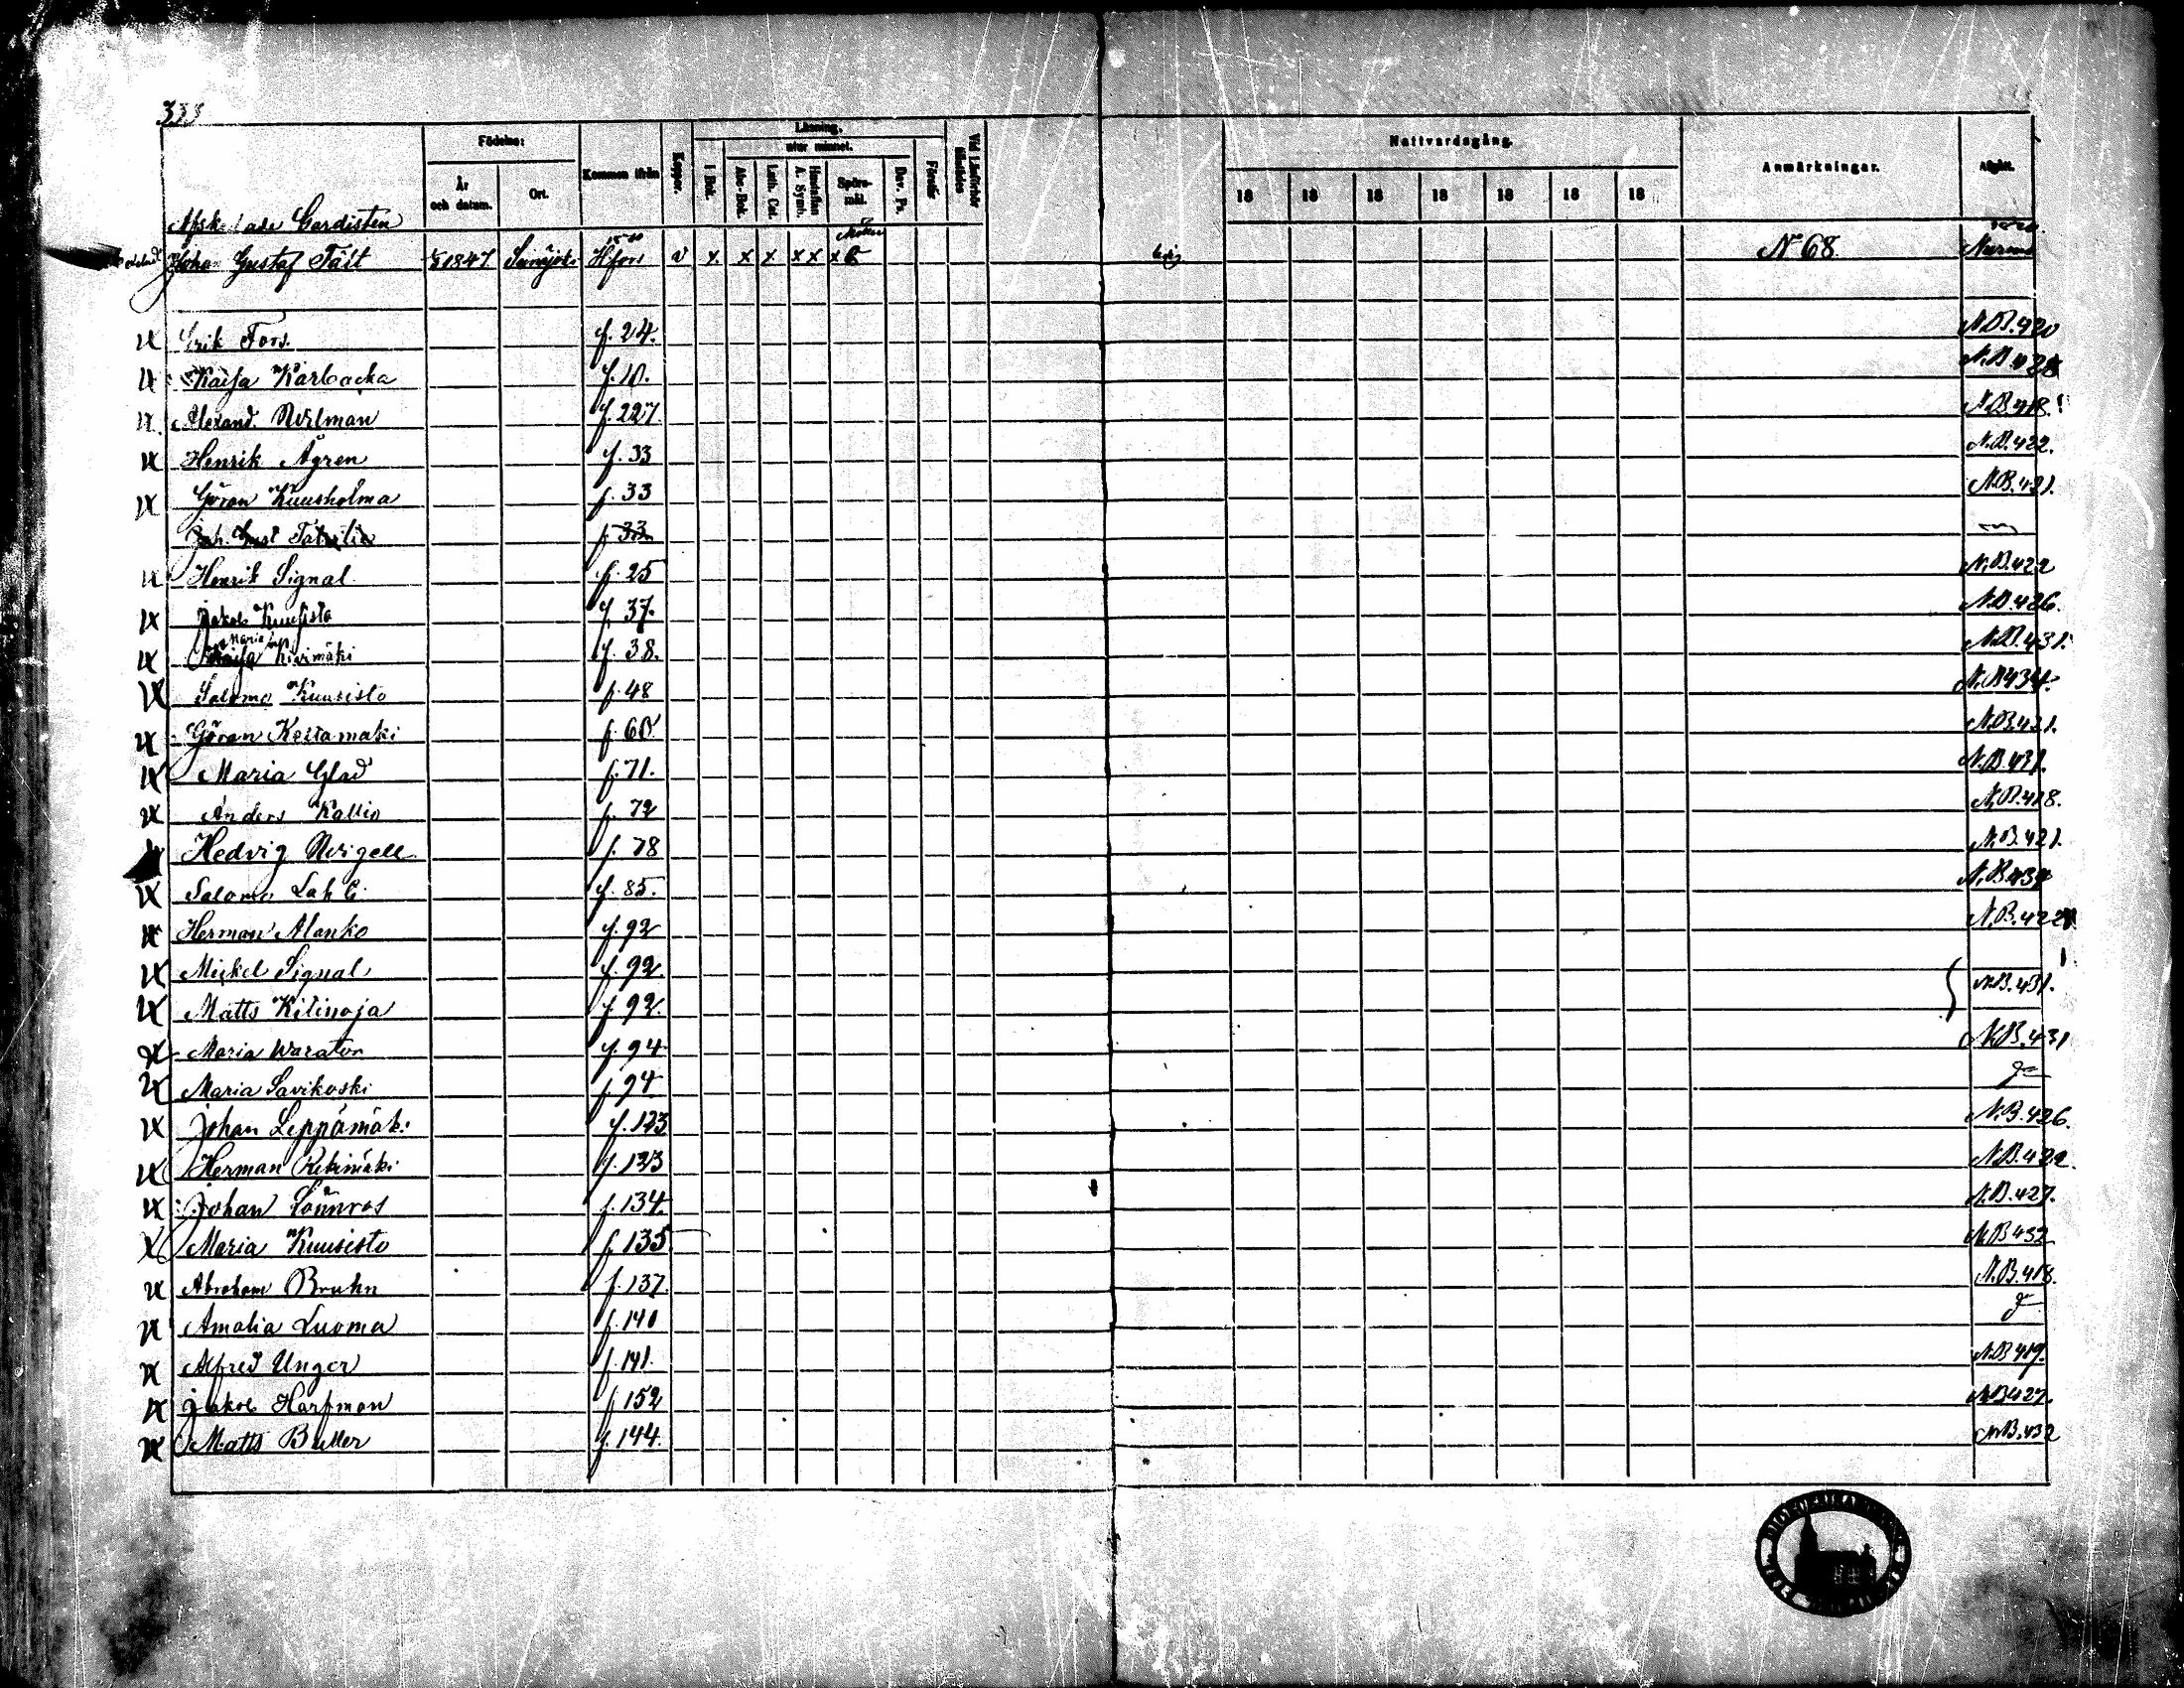 333
Födelse:
År och datum.
Ort.
Kommen ifrån
Koppor.
Läsning.
I Bok.
utur minnet.
Abc-Bok.
Luth. Cat.
Hustaflan A. Symb.
Spörsmål.
Dav. Ps.
Förstår
Vid Läsförhör tillstädes
Nattvardsgång.
18 18 18 18 18 18 18
Anmärkningar.
Afgått.
Afskedade Gardisten
Johan Gustaf Tält 1847 Seinäjoki H:fors v x x x x x x N° 68. Nurmo
Erik Fors. f. 24. N.B. 420
Kaisa Karbacka f. 10. N.B. 428
Alexand. f. 227. N.B. 418.
Henrik Ågren f. 33 N.B. 422.
Göran Kuusholma f. 33 N.B. 421.
Joh. Gust f. 33
Henrik Signal f. 25 N.B. 422
Jakob Kuusisto f. 37. N.B. 426.
Maria
Kaisa Kivimäki f. 38. N.B. 431.
Salomo Kuusisto f. 48 N.B. 434.
Göran Keskamäki f. 60 N.B. 421.
Maria Glad f. 71. N.B. 431.
Anders Kallio f. 72 N.B. 418.
Hedvig f. 78 N.B. 421.
Salomo Lahti f. 85. N.B. 434
Herman Alanko f. 92 N.B. 422
Mickel Signal f. 92.
Matts Kitinoja f. 92. N.B. 431.
Maria f. 94 N.B. 431
Maria Savikoski f. 94
Johan Leppämäki f. 123 N.B. 426.
Herman f. 133 N.B. 422.
Johan Lönnros f. 134. N.B. 427.
Maria Kuusisto f. 135 N.B. 432
Abraham Bruhn f. 137. N.B. 418.
Amalia Luoma f. 140
Alfred Unger f. 141. N.B. 419.
Jakob Harfman f. 152 N.B. 427.
Matts Buller f. 144. N.B. 432